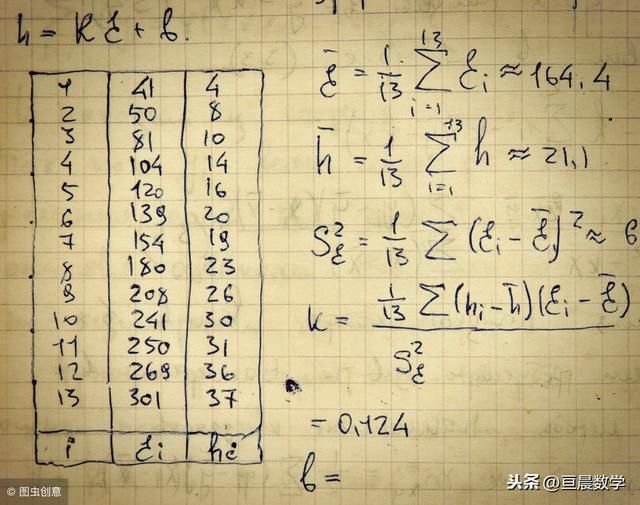 h = kℰ + b.
1 41 4
2 50 8
3 81 10
4 104 14
5 120 16
6 139 20
7 154 19
8 180 23
9 208 26
10 241 30
11 250 31
12 269 36
13 301 37
i ℰi hi
ℰ̄ = 1/13 ∑_{i=1}^{13} ℰi ≈ 164,4
h̄ = 1/13 ∑_{i=1}^{13} h ≈ 21,1
S²_ℰ = 1/13 ∑ (ℰi - ℰ̄)² ≈ 6
k = (1/13 ∑ (hi - h̄)(ℰi - ℰ̄)) / S²_ℰ
= 0,124
b =
© 图虫创意
头条 @亘晨数学